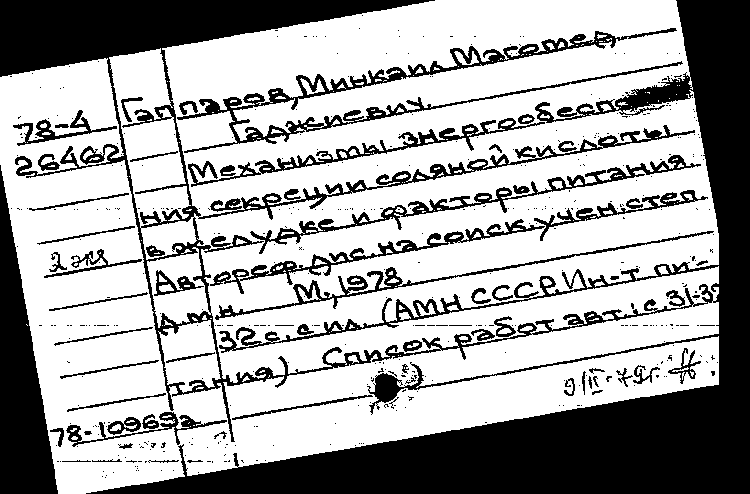 78-4 Гаппаров, Минкаил Магомед
26462 Гаджиевич.
Механизмы энергообеспе
ния секреции соляной кислоты
2 экз в желудке и факторы питания.
Автореф. дис. на соиск. учен. степ.
д.м.н. М., 1978.
32 с. с ил. (АМН СССР. Ин-т пи-
тания). Список работ авт.: с. 31-32
78-10969а 9/II-79г.